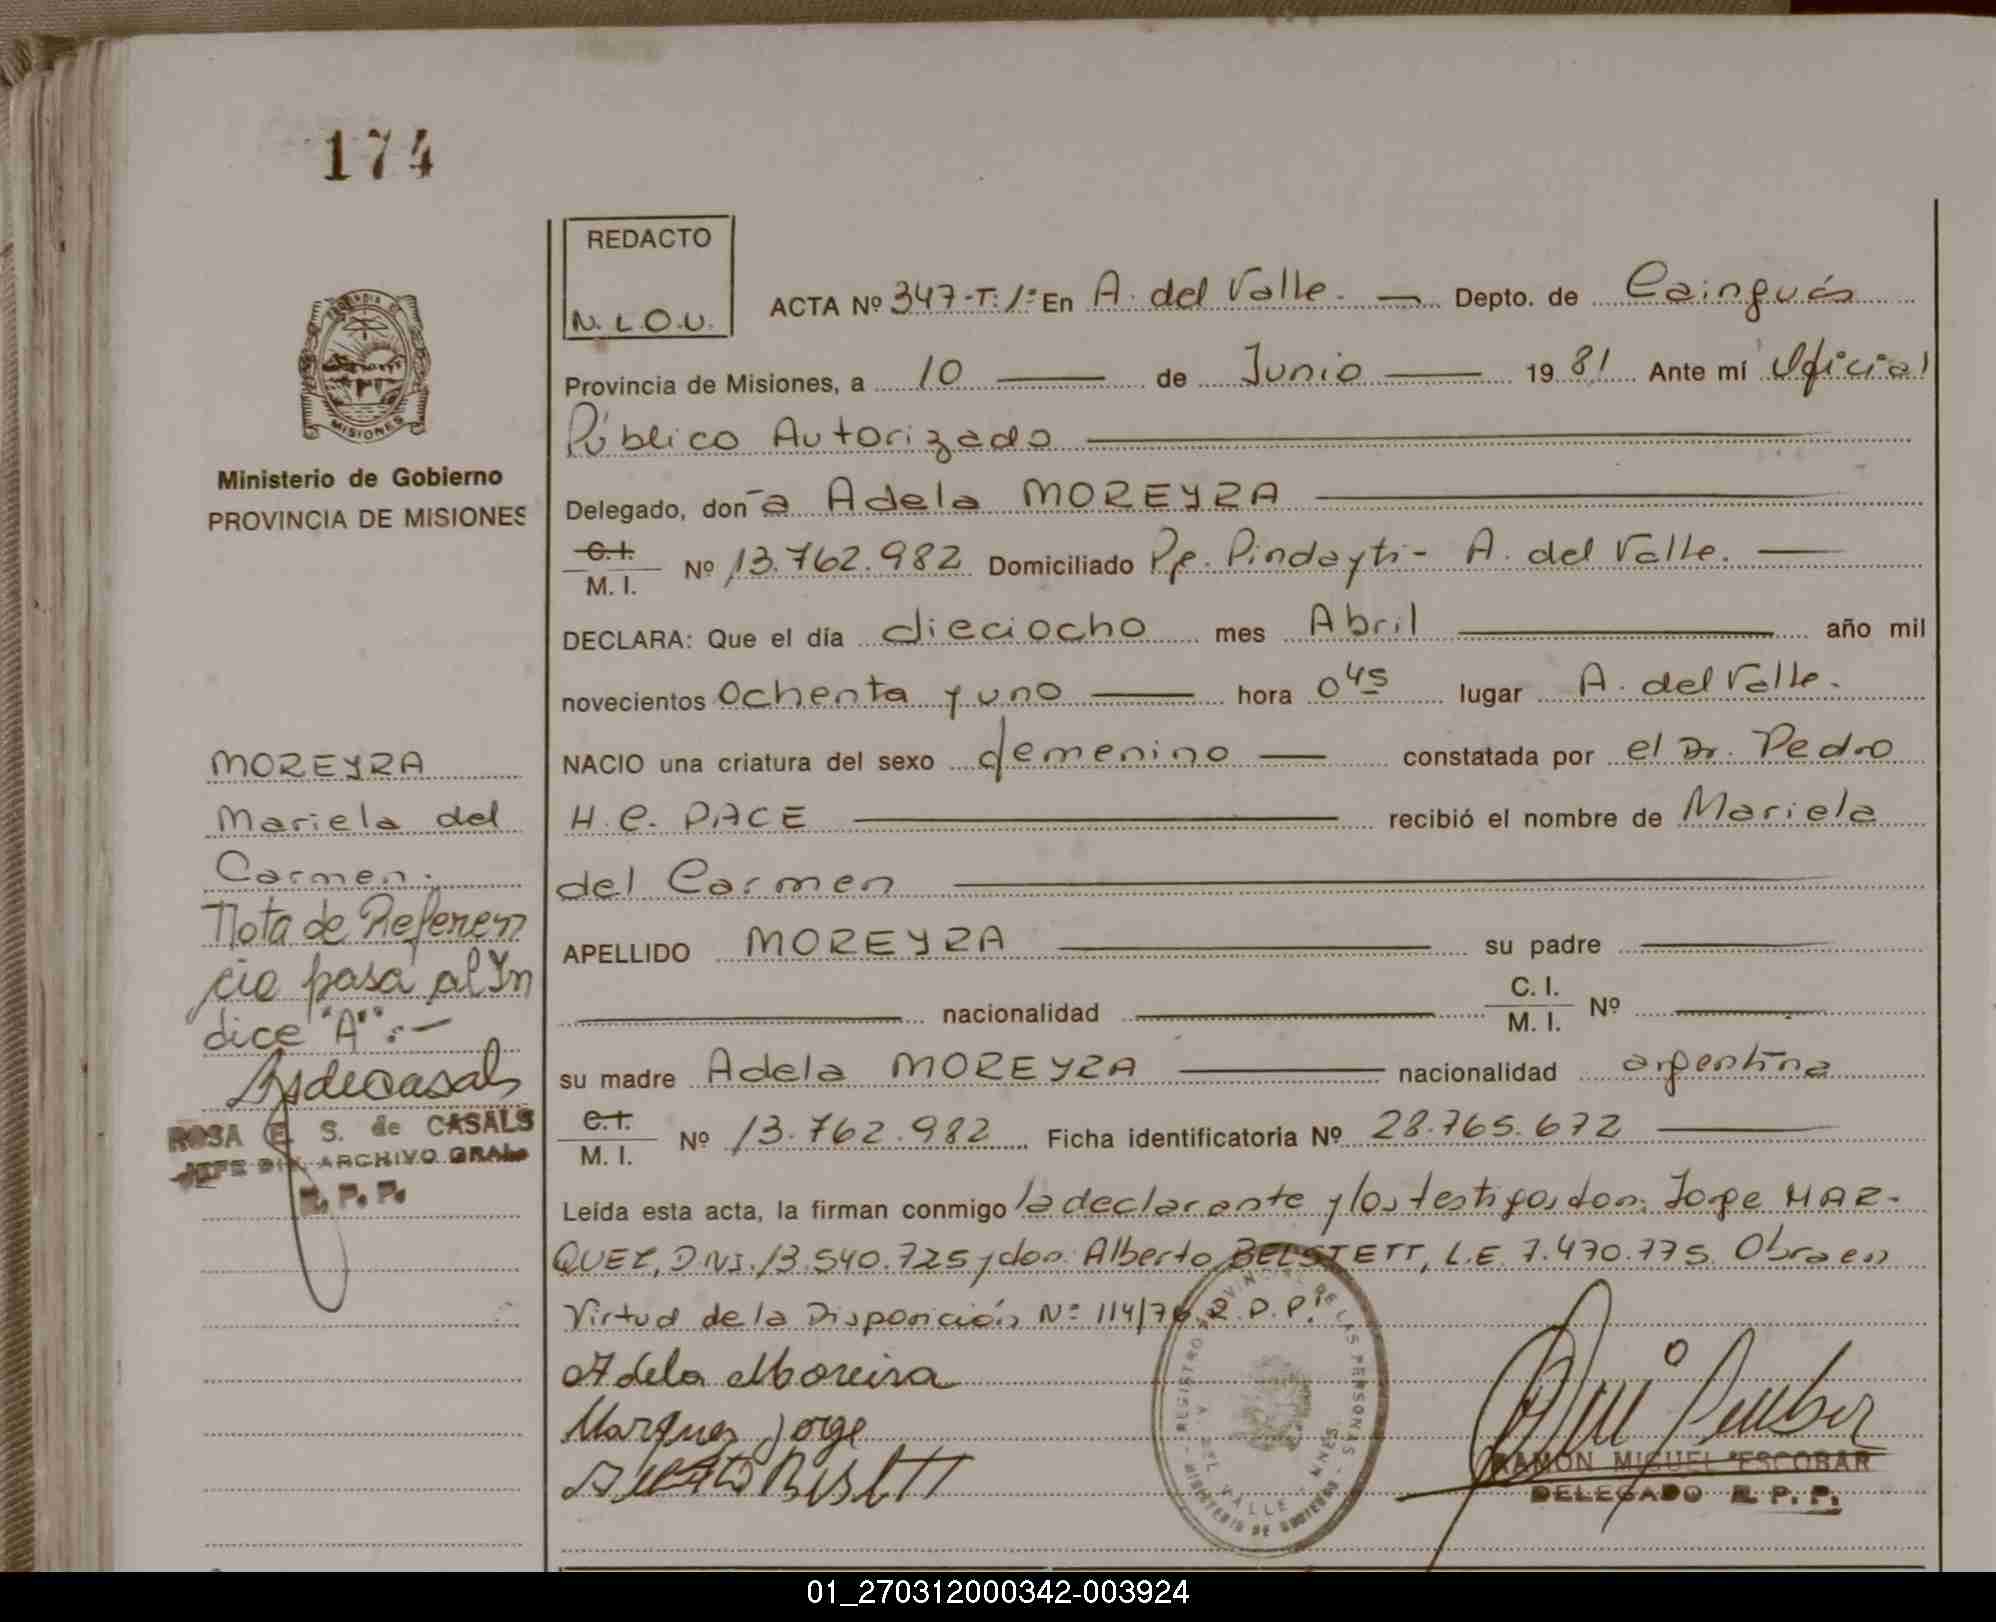 174
REDACTO
N.L.O.U.
ACTA Nº 347-T:1º En A. del Valle. Depto. de Cainguás
Provincia de Misiones, a 10 de Junio 19 81 Ante mí Oficial
Público Autorizado
Delegado, don~a Adela MOREYRA
C.I.
M. I. Nº 13.762.982 Domiciliado Pje. Pindayti - A. del Valle.
DECLARA: Que el día dieciocho mes Abril año mil
novecientos Ochenta y uno hora 0 45 lugar A. del Valle.
NACIO una criatura del sexo femenino constatada por el Dr. Pedro
H. C. PACE recibió el nombre de Mariela
del Carmen
APELLIDO MOREYRA su padre
nacionalidad C. I.
M. I. Nº
su madre Adela MOREYRA nacionalidad argentina
C.I.
M. I. Nº 13.762.982 Ficha identificatoria Nº 28.765.672
Leída esta acta, la firman conmigo la declarante y los testigos don: Jorge MAR-
QUEZ, DNI. 13.540.725 y don: Alberto BELSTETT, L.E. 7.470.775. Obra en
Virtud de la Disposición Nº 114/76 R.P.P.
Adela Moreira
Marquez Jorge
RAMON MIGUEL ESCOBAR
DELEGADO R. P. P.
REGISTRO PROVINCIAL DE LAS PERSONAS
A. DEL VALLE - MNES.
MINISTERIO DE GOBIERNO
MISIONES
Ministerio de Gobierno
PROVINCIA DE MISIONES
MOREYRA
Mariela del
Carmen.
Nota de Referen
cia pasa al Yn
dice "A".-
ROSA E. S. de CASALS
JEFE DIV. ARCHIVO GRAL.
R. P. P.
01_270312000342-003924